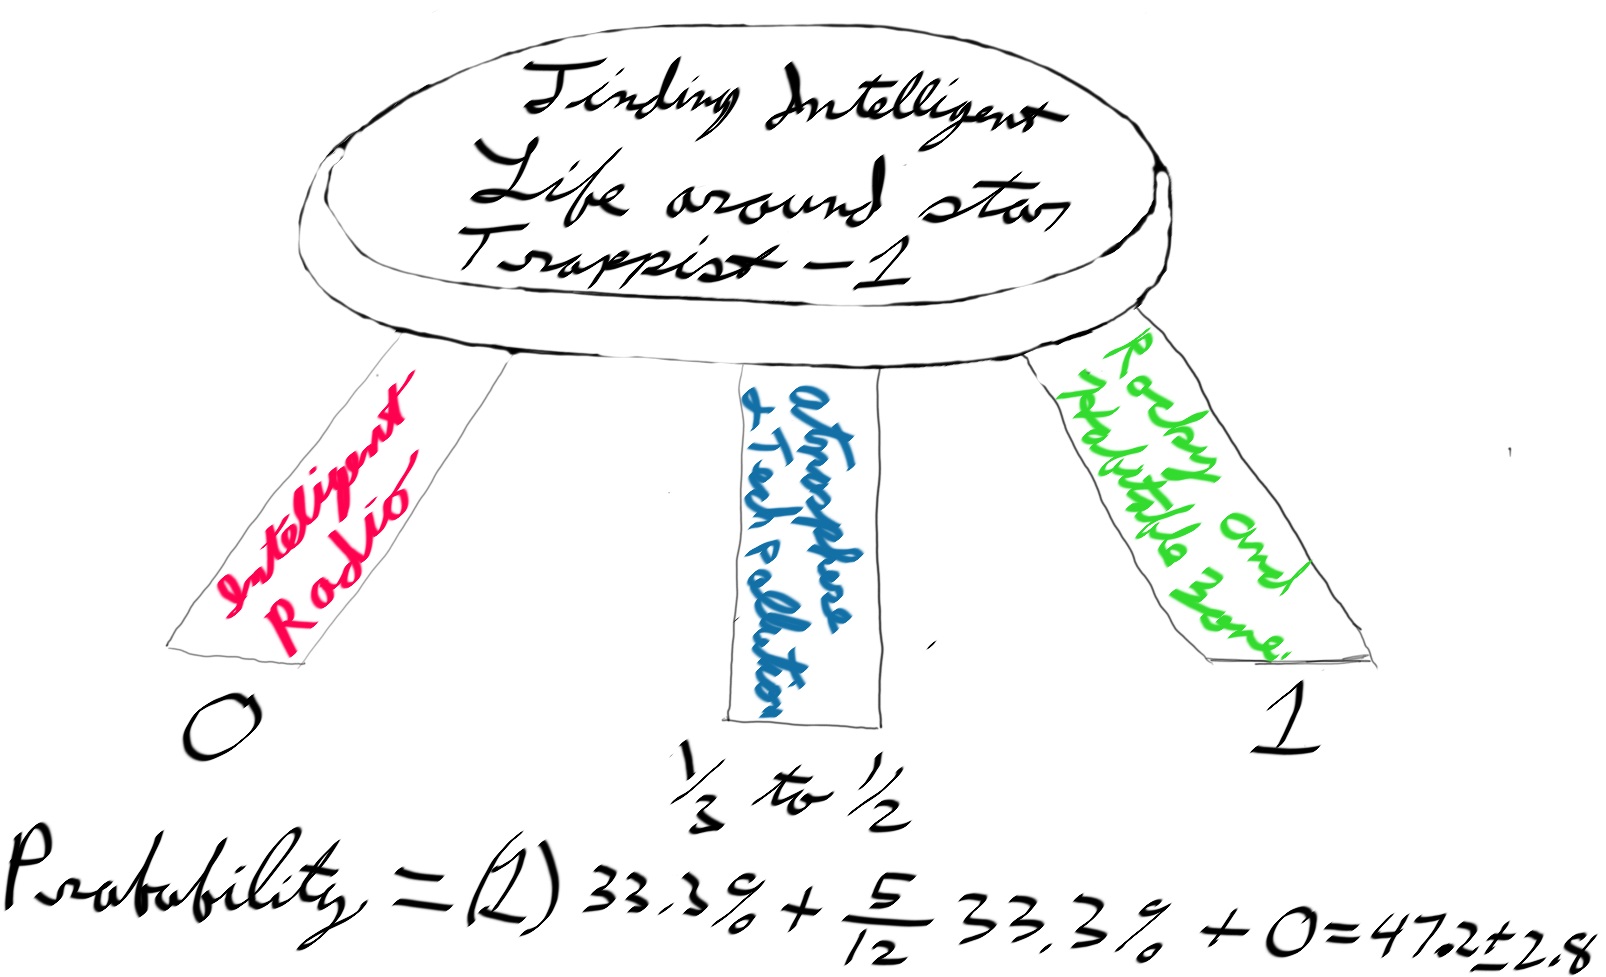 Finding Intelligent
Life around star
Trappist-1
Inteligent
Radio
atmosphere
& Tech Pollution
Rocky and
Habitable Zone.
0
1/3 to 1/2
1
Probability = (1) 33.3% + 5/12 33.3% + 0 = 47.2 ± 2.8